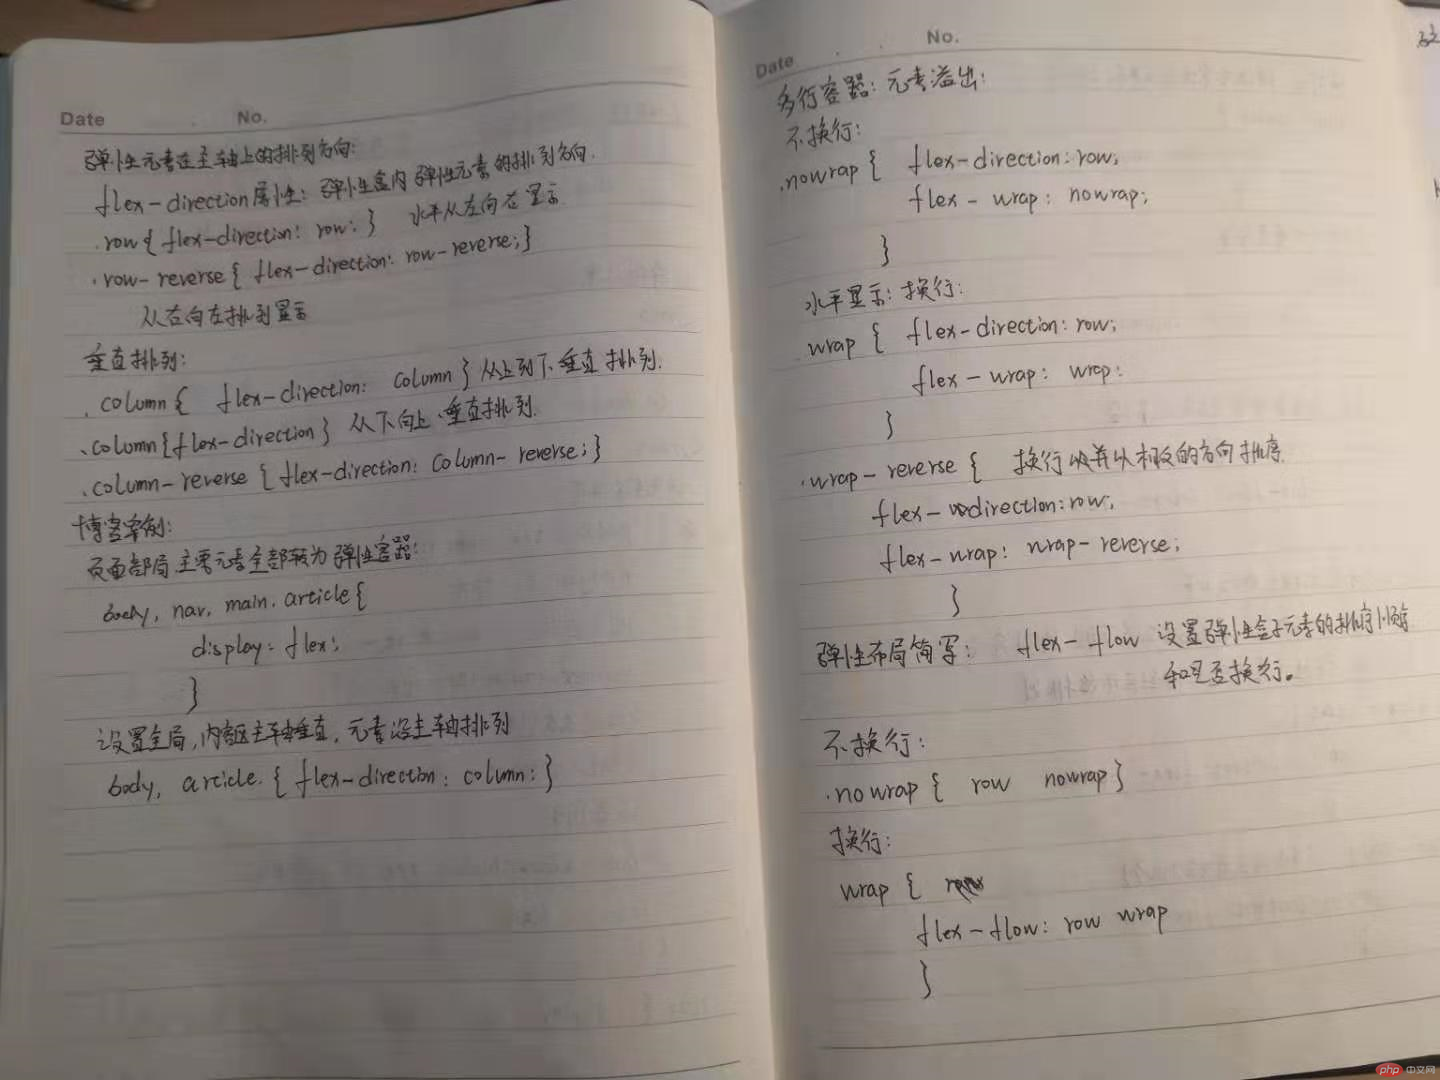 Date No.
弹性元素在主轴上的排列方向:
flex-direction属性: 弹性盒内弹性元素的排列方向.
.row{ flex-direction: row; } 水平从左向右显示
.row-reverse{ flex-direction: row-reverse; }
从右向左排列显示
垂直排列:
.column{ flex-direction: column } 从上到下垂直排列.
.column{flex-direction} 从下向上、垂直排列.
.column-reverse { flex-direction: column-reverse; }
博客案例:
页面部局 主要元素全部转为弹性容器:
body, nav, main, article{
display: flex;
}
设置全局,内容区主轴垂直,元素沿主轴排列
body, article. { flex-direction: column; }
Date No.
多行容器: 元素溢出:
不换行:
.nowrap { flex-direction: row;
flex-wrap: nowrap;
}
水平显示: 换行:
.wrap { flex-direction: row;
flex-wrap: wrap:
}
.wrap-reverse { 换行 并以相反的方向排序.
flex-direction: row;
flex-wrap: wrap-reverse;
}
弹性布局简写: flex-flow 设置弹性盒子元素的排序顺序
和是否换行。
不换行:
.nowrap { row nowrap }
换行:
wrap {
flex-flow: row wrap
}
php 中文网